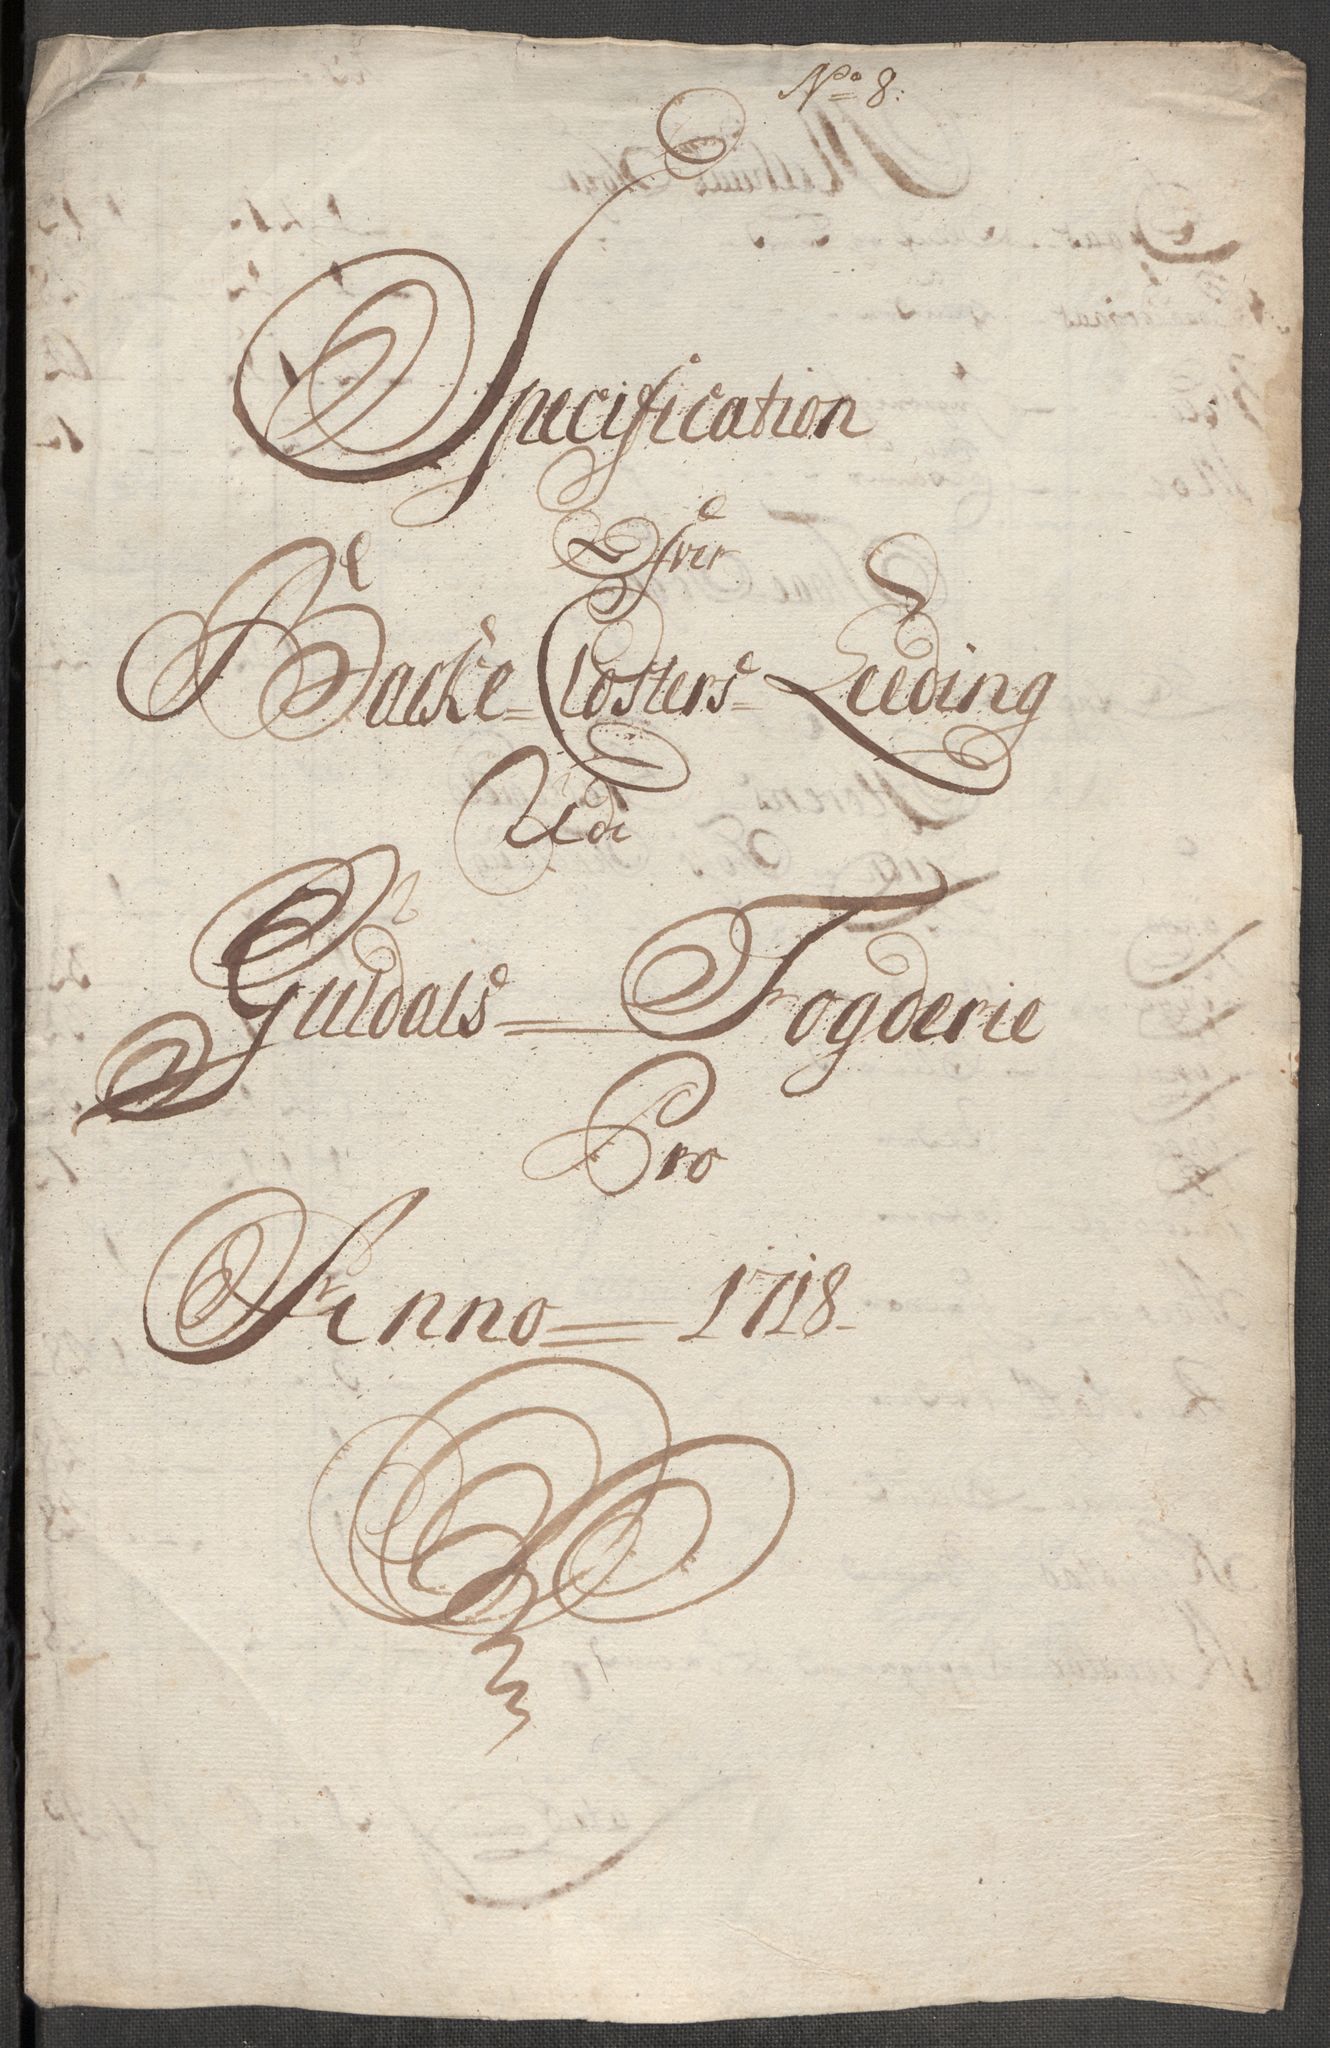 No 8:
Specification
Ofver
Backe-Closters-Leeding
Udi
Guldals Fogderie
Pro
Anno 1718